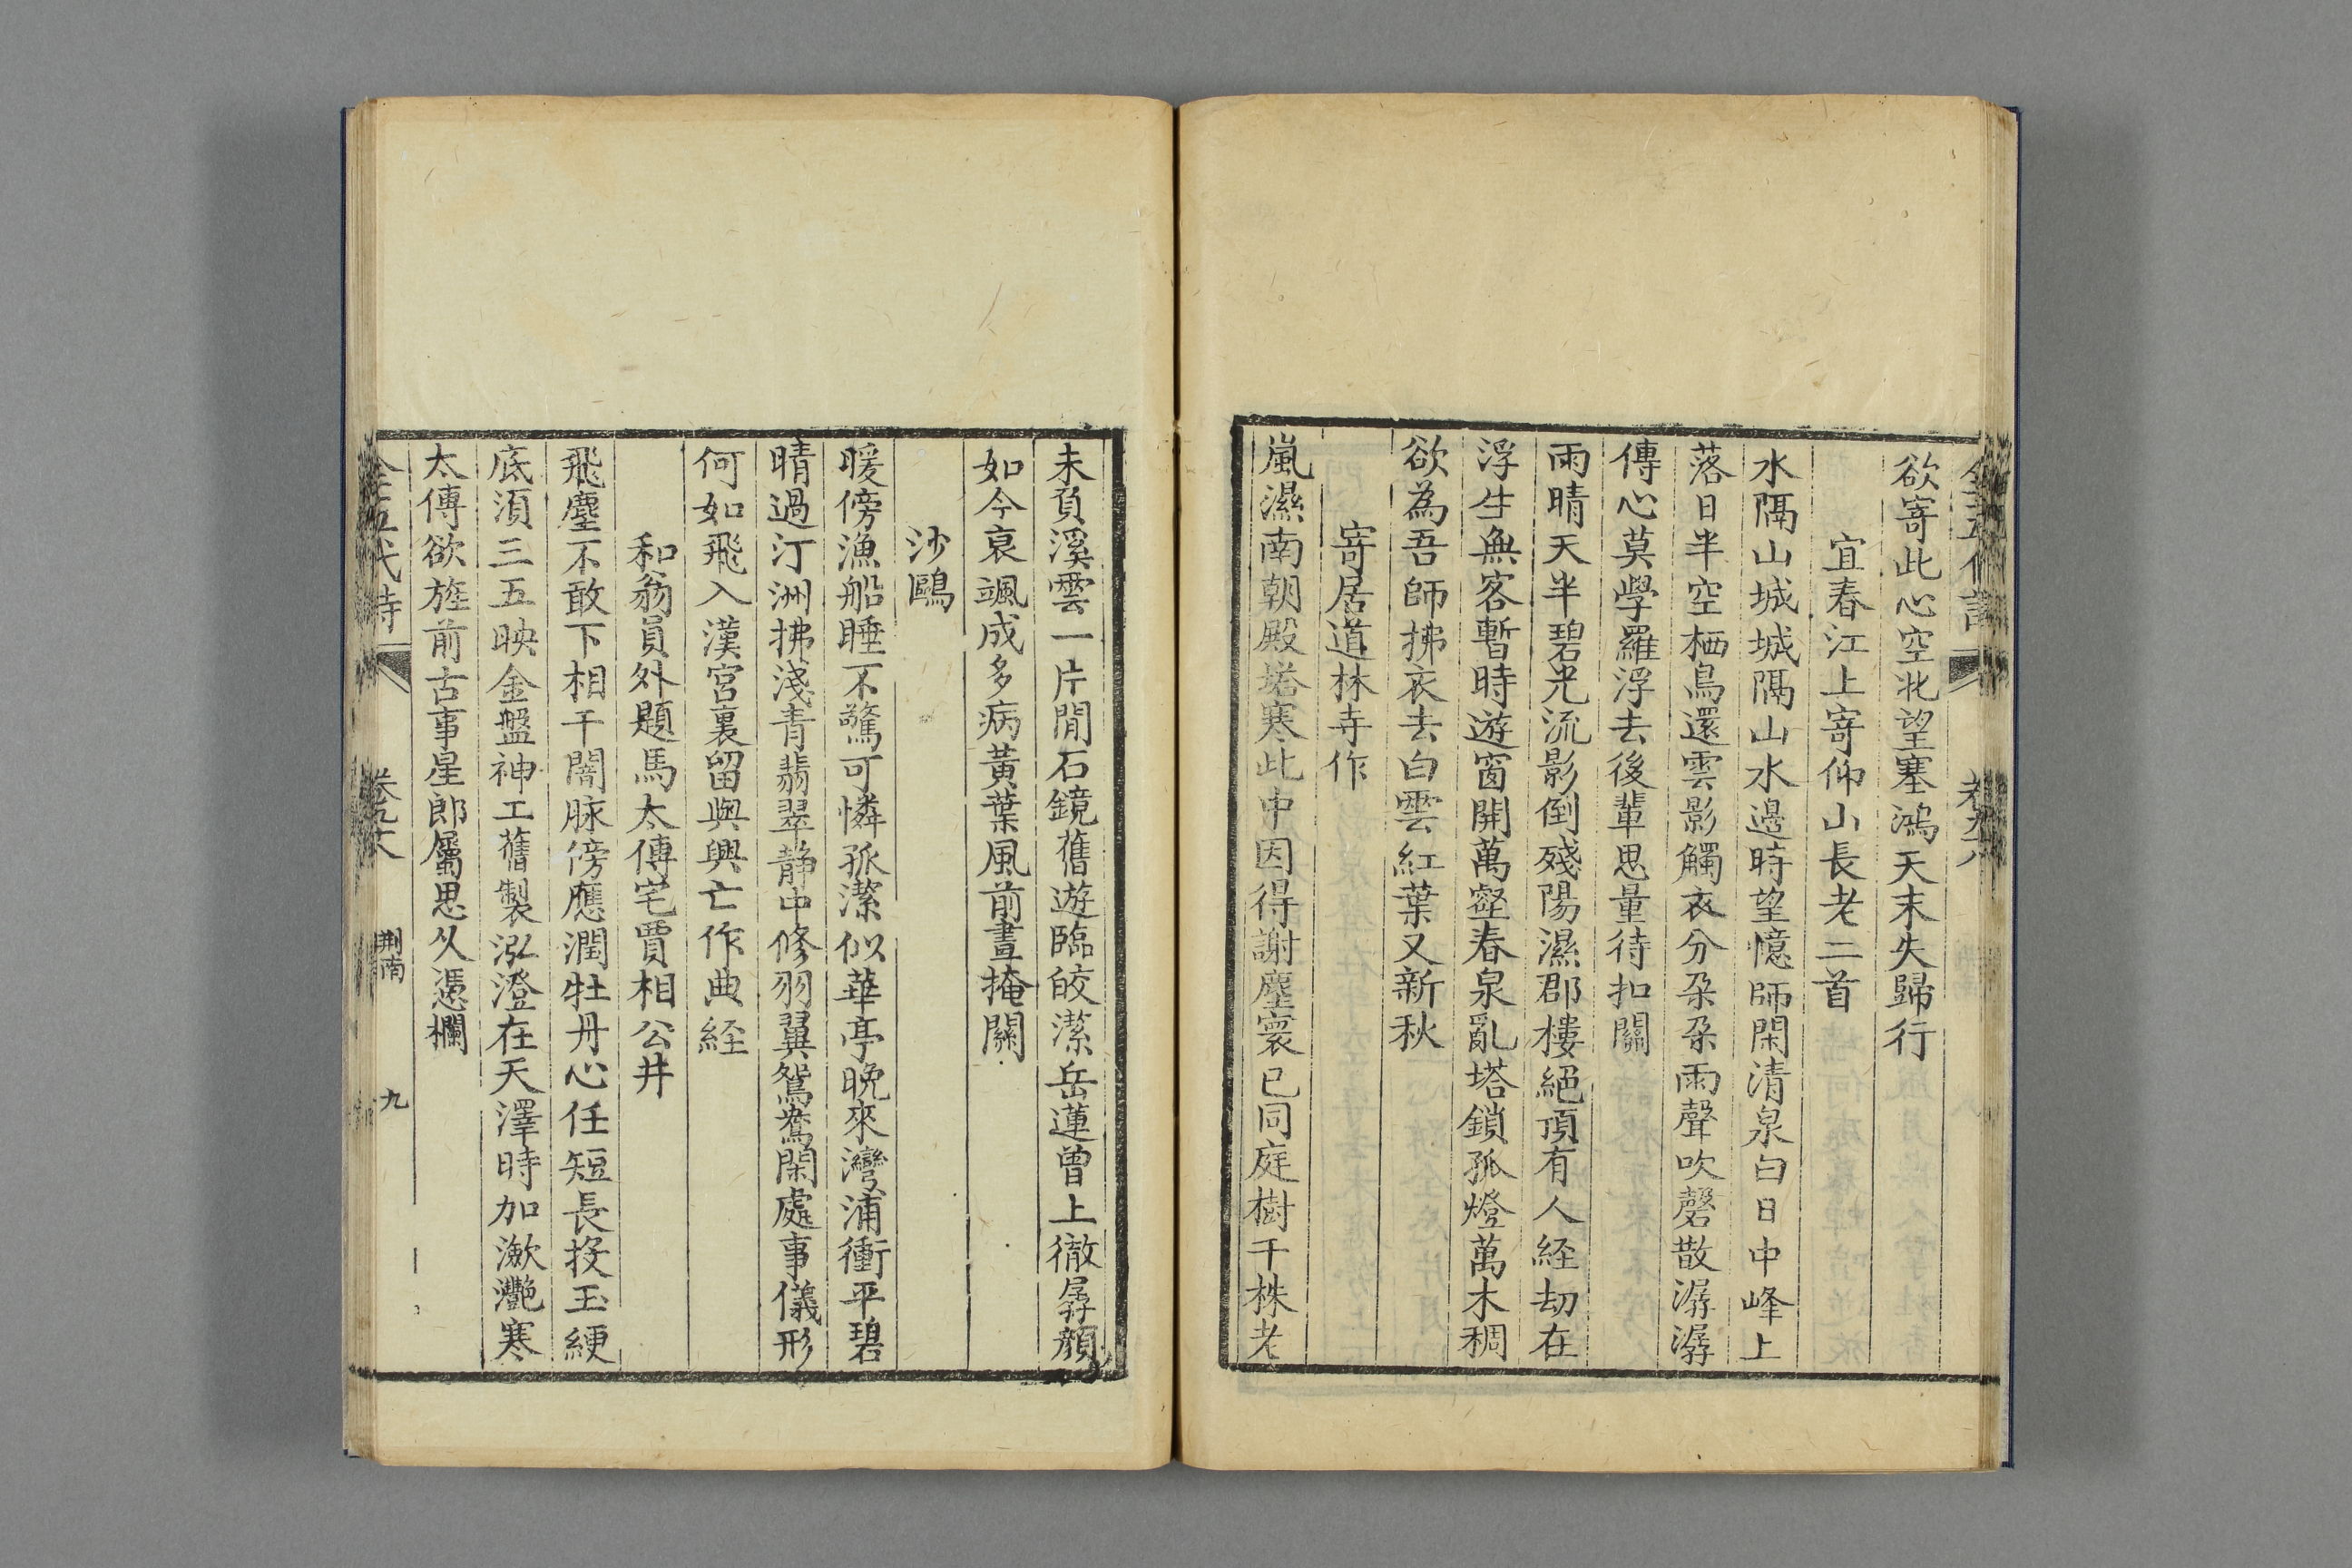 全五代詩
卷九十八
欲寄此心空北望塞鴻天末失歸行
宜春江上寄仰山長老二首
水隔山城城隔山水邊時望憶師閑清泉白日中峰上
落日半空栖鳥還雲影觸衣分朶朶雨聲吹磬散潺潺
傳心莫學羅浮去後輩思量待扣關
雨晴天半碧光流影倒殘陽濕郡樓絕頂有人経劫在
浮生無客暫時遊窗開萬壑春泉亂塔鎖孤燈萬木稠
欲為吾師拂衣去白雲紅葉又新秋
寄居道林寺作
嵐濕南朝殿塔寒此中因得謝塵寰已同庭樹千株老
未負溪雲一片閒石鏡舊遊臨皎潔岳蓮曾上徹孱顏
如今衰颯成多病黃葉風前晝掩關
沙鷗
暖傍漁船睡不驚可憐孤潔似華亭晚來灣浦衝平碧
晴過汀洲拂淺青翡翠靜中修羽翼鴛鴦閑處事儀形
何如飛入漢宮裏留與興亡作典経
和翁員外題馬太傅宅賈相公井
飛塵不敢下相干闇脉傍應潤牡丹心任短長投玉綆
底須三五映金盤神工舊製泓澄在天澤時加瀲灧寒
太傅欲旌前古事星郎屬思久憑欄
全五代詩
荆南
九